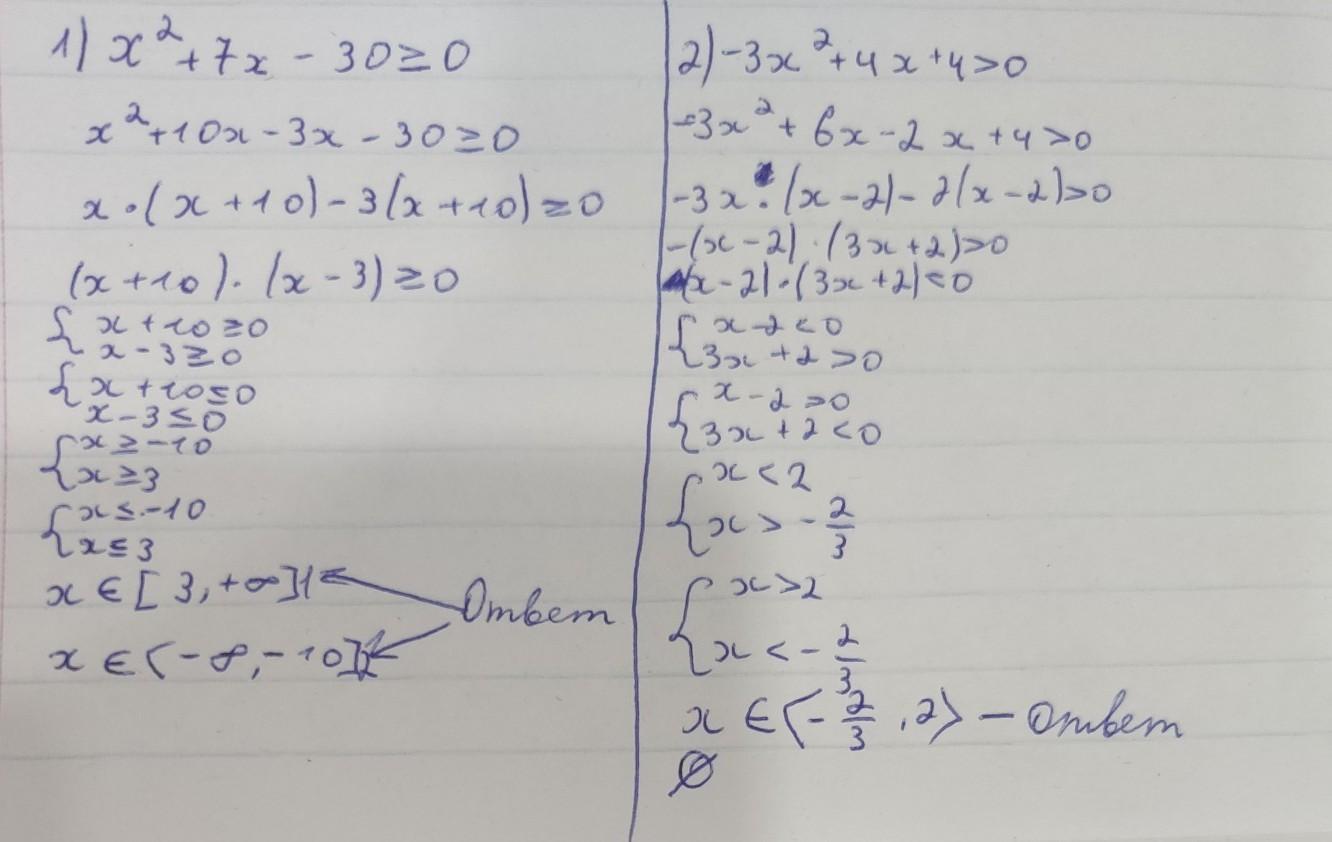 1) x²+7x - 30≥0
x²+10x-3x-30≥0
x·(x+10)-3(x+10)≥0
(x+10)·(x-3)≥0
{ x+10≥0
x-3≥0
{ x+10≤0
x-3≤0
{ x≥-10
x≥3
{ x≤-10
x≤3
x∈[3,+∞]
x∈(-∞,-10]
Ответ
2) -3x²+4x+4>0
-3x²+6x-2x+4>0
-3x·(x-2)-2(x-2)>0
-(x-2)·(3x+2)>0
(x-2)·(3x+2)<0
{ x-2<0
3x+2>0
{ x-2>0
3x+2<0
{ x<2
x>-2/3
{ x>2
x<-2/3
x∈⟨-2/3,2⟩ - Ответ
∅